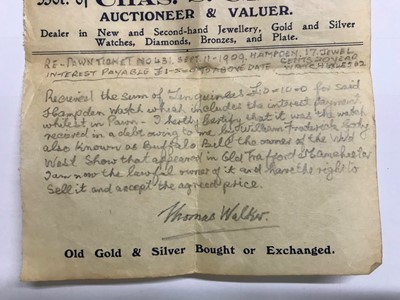 Bot. of CHAS. S.
AUCTIONEER & VALUER.
Dealer in New and Second-hand Jewellery, Gold and Silver
Watches, Diamonds, Bronzes, and Plate.
RE-PAWN TICKET NO 431. SEPT 11-1909, HAMPDEN, 17. JEWEL,
INTEREST PAYABLE £1-5- ABOVE DATE GENTS
WATCH
Received the sum of Ten guineas £10-10-0 for said
Hampden watch which includes the interest
whilst in Pawn - I hereby certify that it was the watch
received in a debt owing to me by William Frederick Cody
also known as Buffalo Bill the owner of the Wild
West Show that appeared in Old Trafford Manchester
I am now the lawful owner of it and have the right to
Sell it and accept the agreed price.
Thomas Walker.
Old Gold & Silver Bought or Exchanged.